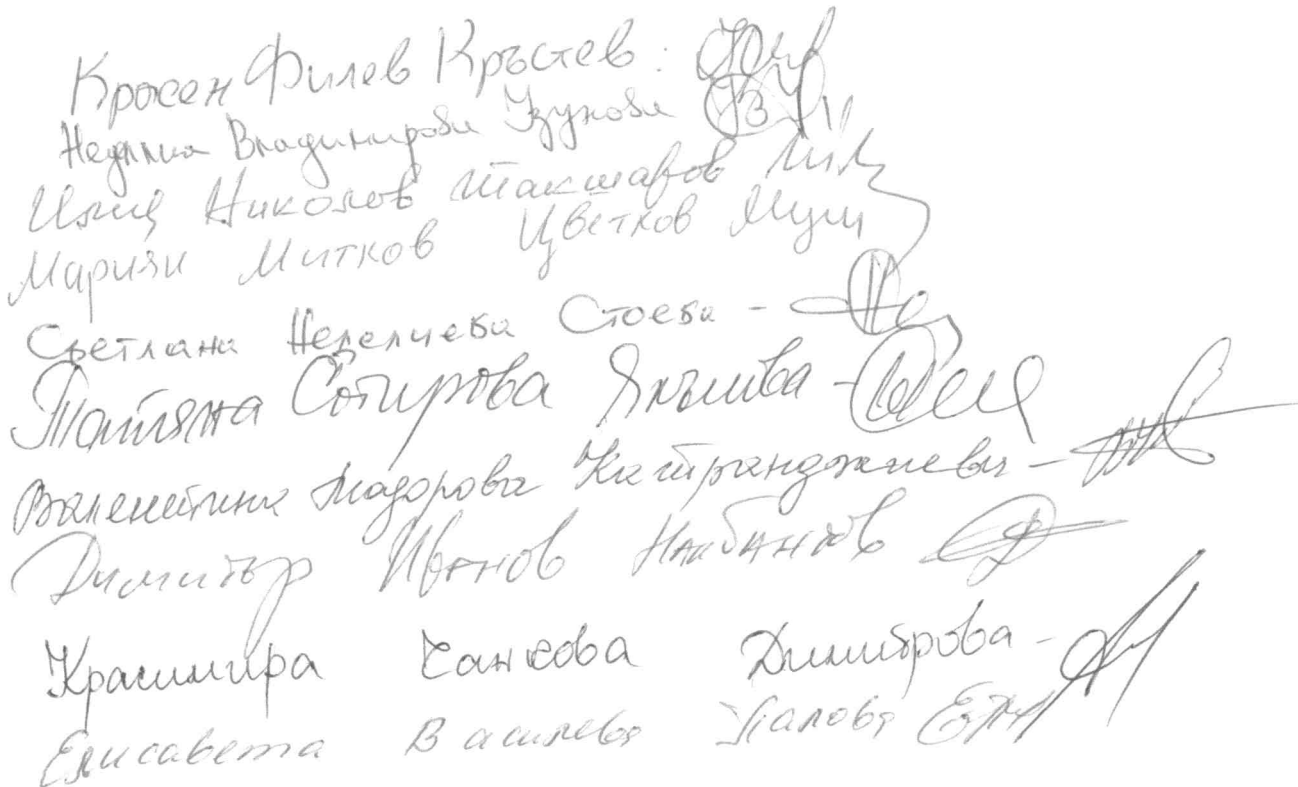 Красен Филев Кръстев:
Недялка Владимирова Узунова
Илия Николов Такшаров
Мариян Митков Цветков
Светлана Неделчева Стоева -
Татяна Сотирова -
Валентина Тодорова Катранджиева -
Димитър Иванов
Красимира Санкова Димитрова -
Елисавета Василева